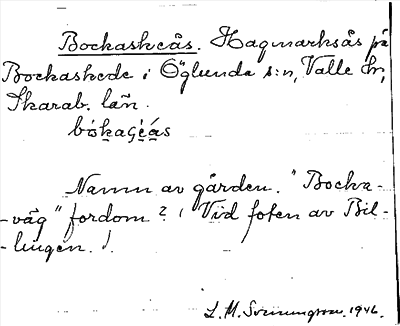 Bockaskeås. Hagmarksås på
Bockaskede i Öglunda s:n, Valle hr,
Skarab. län.
bókaʂe̍ás
Namn av gården. "Bocka-
-väg" fordom? (Vid foten av Bil-
-lingen.)
L. M. Svenungsson. 1946.